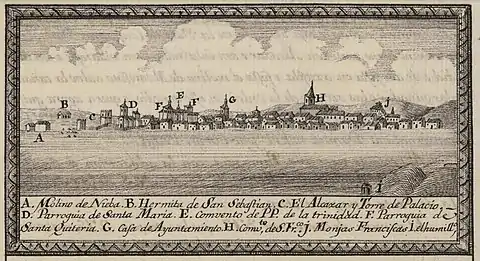 B
A
C
D
E
F
F
G
H
J
I
A. Molino de Nieba. B. Hermita de San Sebastian. C. El Alcazar y Torre de Palacio.
D. Parroquia de Santa Maria. E. Comvento de PP. de la trinidad. F. Parroquia de
Santa Quiteria. G. Casa de Ayuntamiento. H. Comv.to de S. Fr.co J. Monjas Franciscas I.